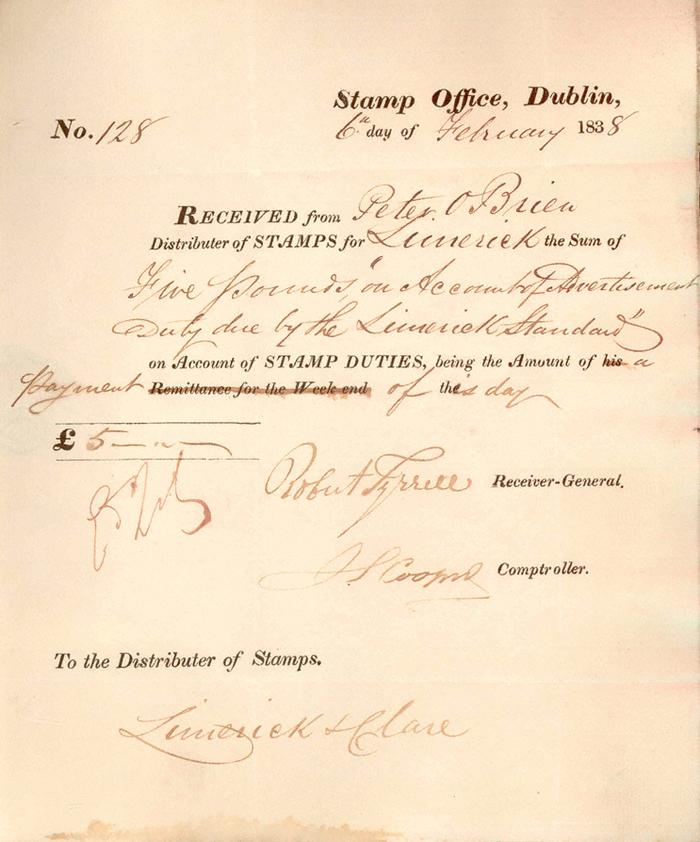 Stamp Office, Dublin,
No. 128 6th day of February 1838
RECEIVED from Peter O'Brien
Distributer of STAMPS for Limerick the Sum of
Five Pounds, "on Account of Advertisement
Duty due by the Limerick Standard"
on Account of STAMP DUTIES, being the Amount of his a
Payment Remittance for the Week end of this day
£ 5 — " —
Robert Tyrrell Receiver-General.
Comptroller.
To the Distributer of Stamps.
Limerick & Clare